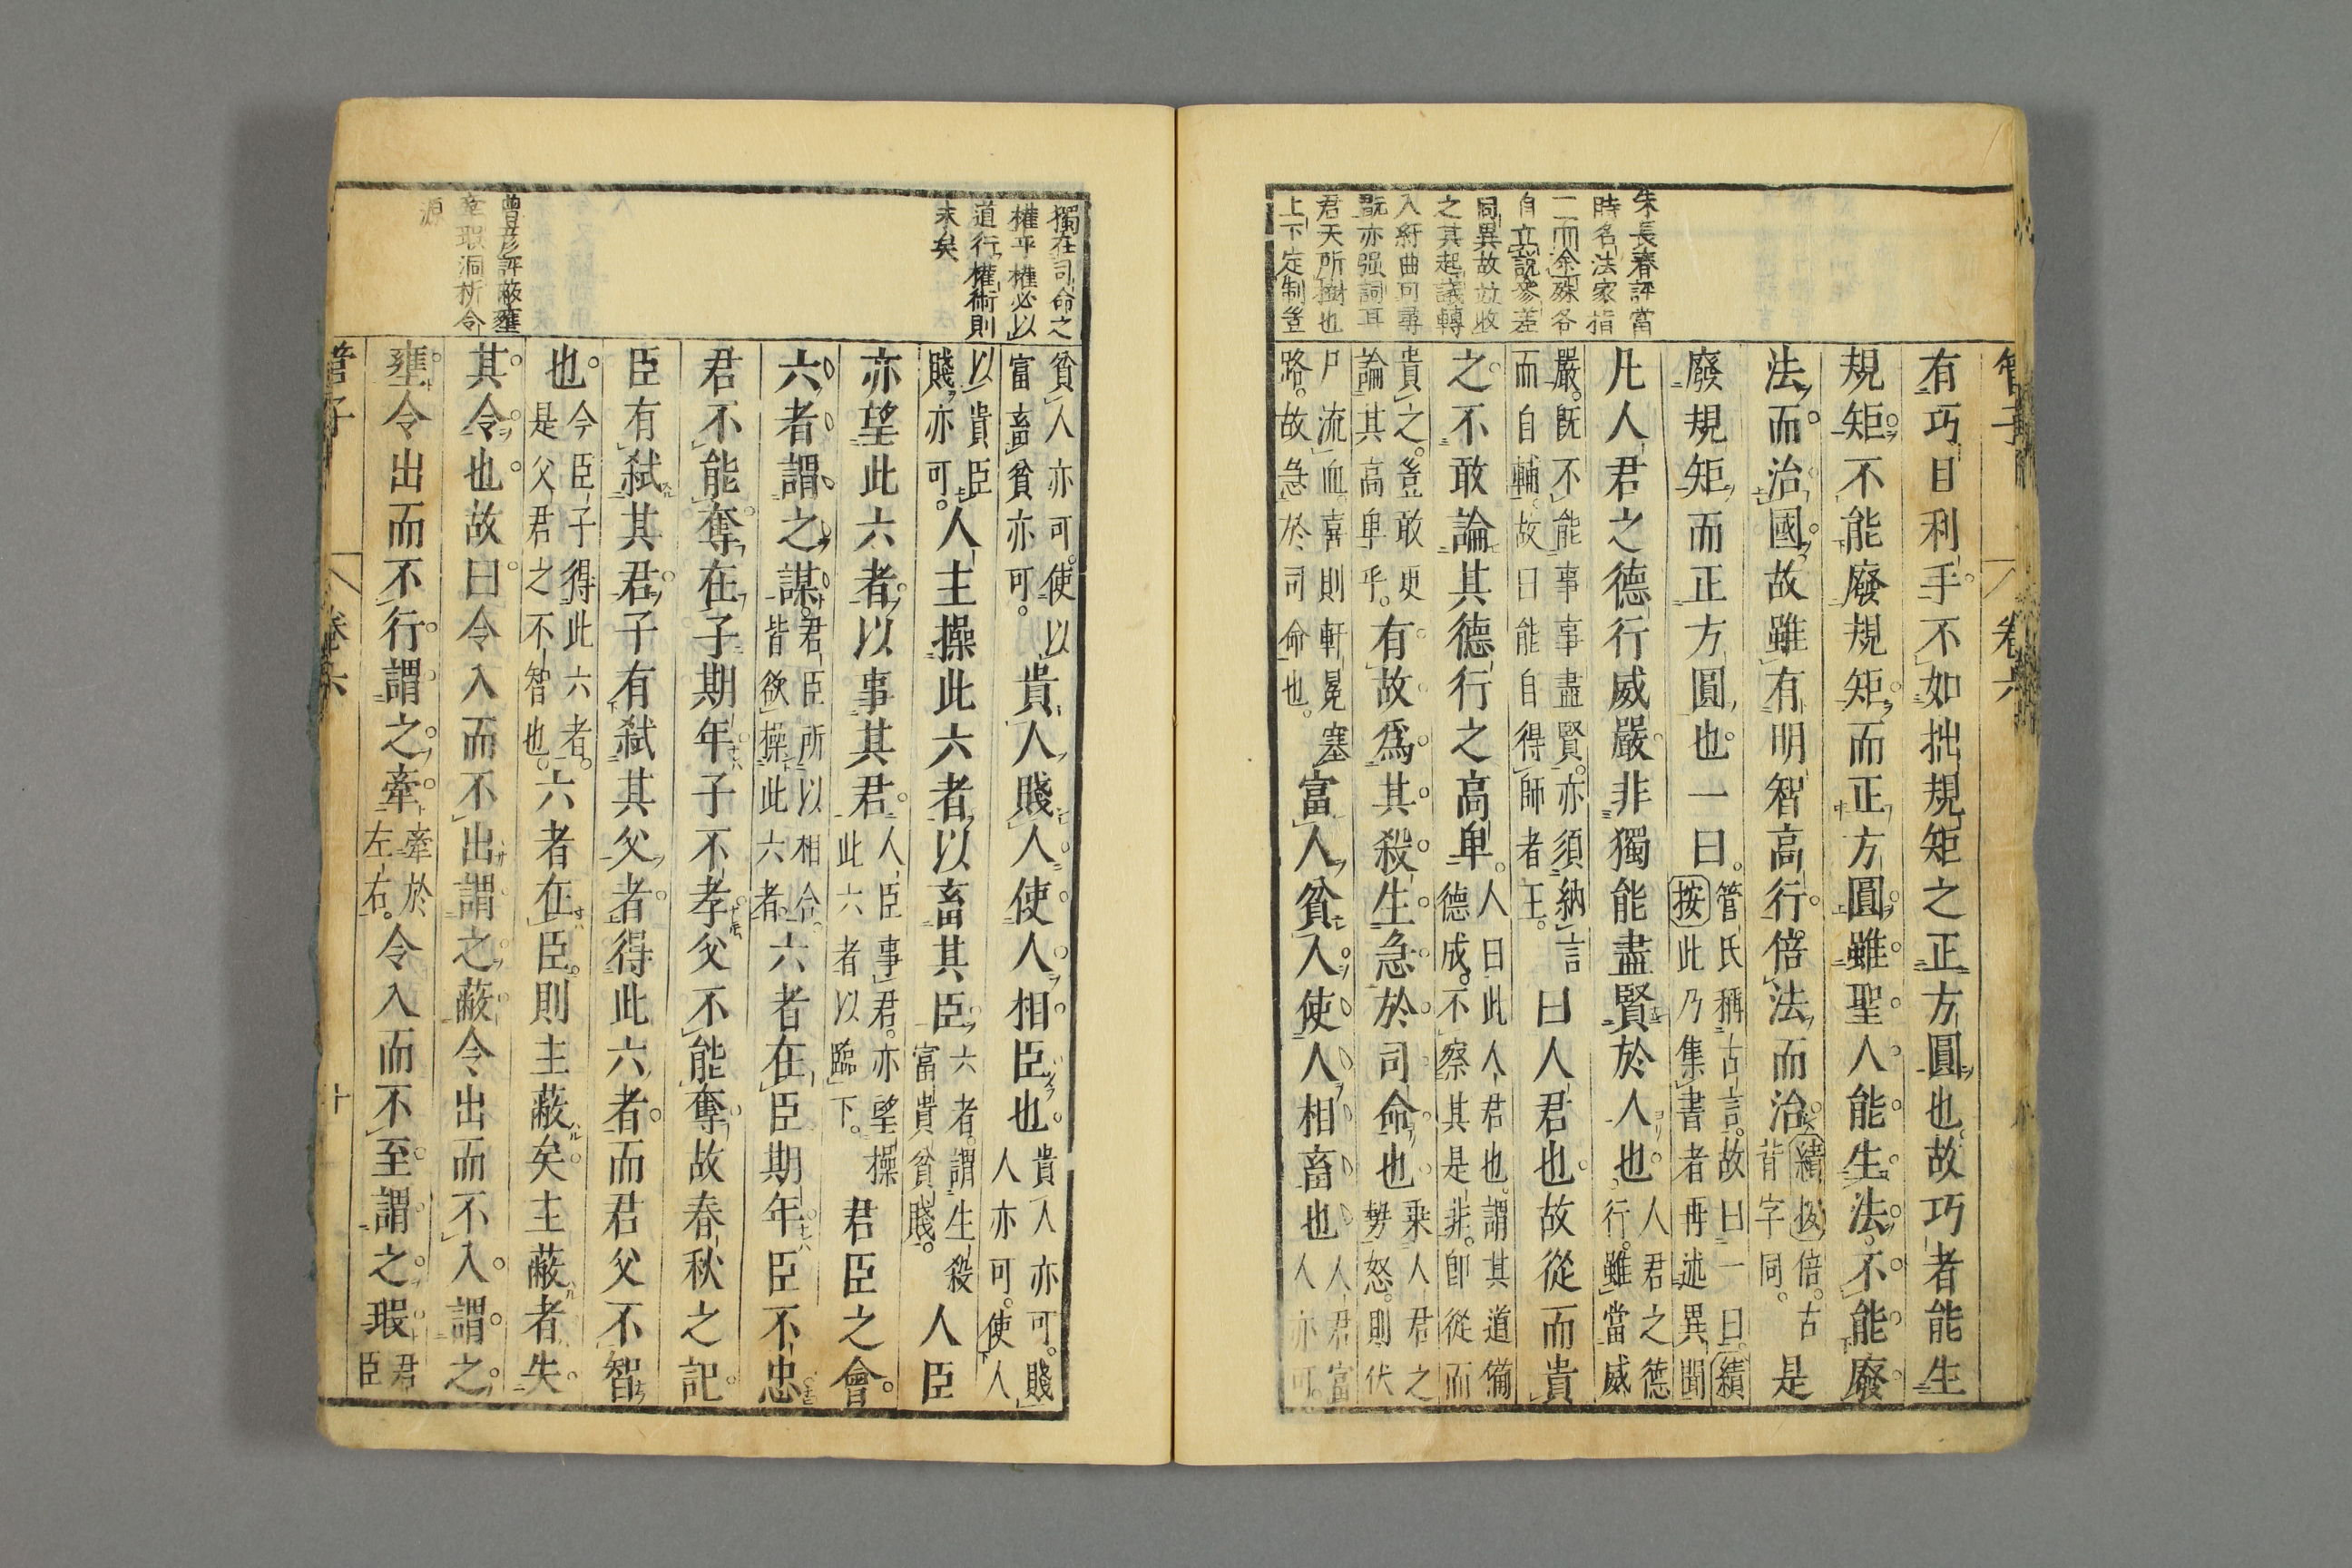 朱長春評當
時名法家指
二而命殊各
自立說參差
同異故竝收
之其起議轉
入紆曲可尋
君天所樹也
管子
卷六
有巧目利手不如拙規矩之正方圓也故巧者能生
規矩不能廢規矩而正方圓雖聖人能生法不能廢
法而治國故雖有明智高行倍法而治續按倍古背字同是
廢規矩而正方圓也一曰管氏稱古言故曰一曰續按此乃集書者再述異聞
凡人君之德行威嚴非獨能盡賢於人也人君之德行雖當威
嚴既不能事事盡賢亦須納言而自輔故曰能自得師者王曰人君也故從而貴
之不敢論其德行之高卑人曰此人君也謂其道備德成不察其是非卽從而
貴之豈敢更論其高卑乎有故爲其殺生急於司命也乘人君之勢怒則伏
尸流血喜則軒冕塞路故急於司命也富人貧人使人相畜也人君富人亦可
獨在司命之
權乎權必以
道行權術則
末矣
曾彥評蔽壅
牽瑕洞析令
源
貧人亦可使以富畜貧亦可貴人賤人使人相臣也貴人亦可賤人亦可使人
以貴臣賤亦可人主操此六者以畜其臣六者謂生殺富貴貧賤人臣
亦望此六者以事其君人臣事君亦望操此六者以臨下君臣之會
六者謂之謀君臣所以相合皆欲操此六者六者在臣期年臣不忠
君不能奪在子期年子不孝父不能奪故春秋之記
臣有弑其君子有弑其父者得此六者而君父不智
也今臣子得此六者是父君之不智也六者在臣則主蔽矣主蔽者失
其令也故曰令入而不出謂之蔽令出而不入謂之
壅令出而不行謂之牽牽於左右令入而不至謂之瑕君臣
管子
卷六
十